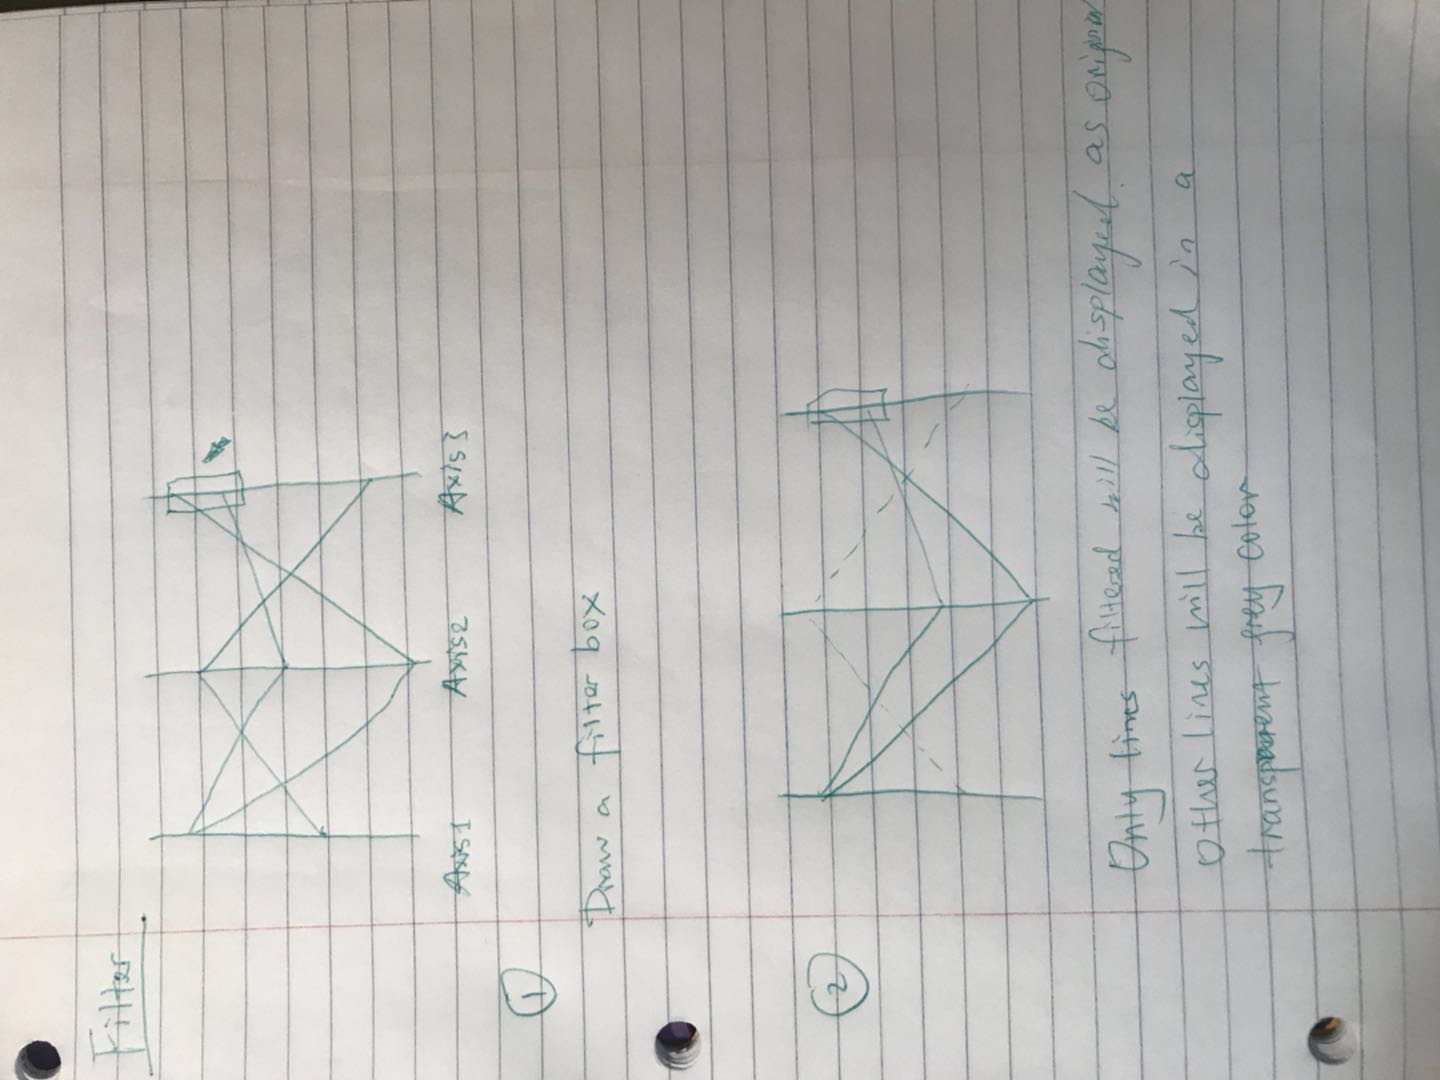 Filter
Axis1 Axis2 Axis3
1
Draw a filter box
2
Only lines filtered will be displayed as original
Other lines will be displayed in a
transparent grey color